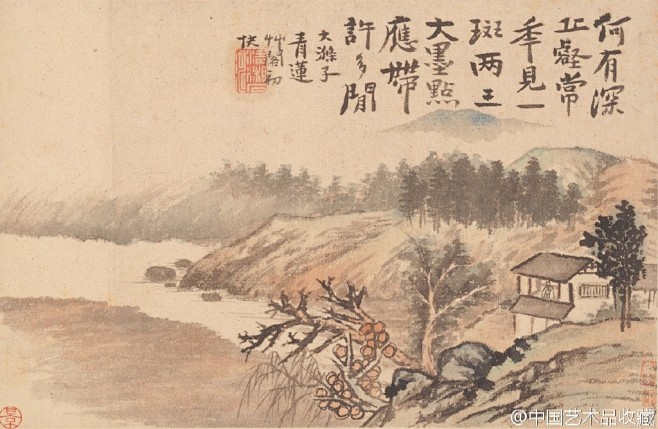 何有深
止壑常
季見一
斑两三
大墨點
應帶
許多閒
大滌子
青蓮
艸閣初
@中国艺术品收藏